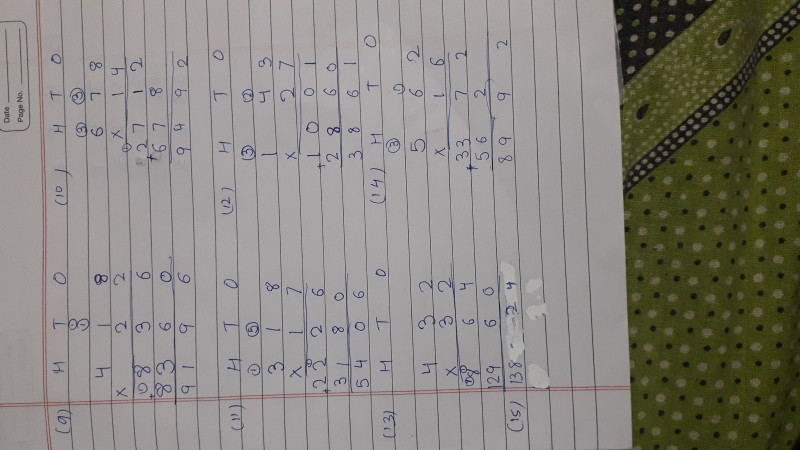 Date
Page No.
(9) H T O (10) H T O
① ① ③ ③
4 1 8 6 7 8
x 2 2 x 1 4
0 8 3 6 2 7 1 2
+ 8 3 6 0 + 6 7 8
9 1 9 6 9 4 9 2
(11) H T O (12) H T O
① ⑤ ③ ②
3 1 8 1 4 3
x 1 7 x 2 7
2 2 2 6 1 0 0 1
+ 3 1 8 0 + 2 8 6 0
5 4 0 6 3 8 6 1
(13) H T O (14) H T O
③ ①
4 3 2 5 6 2
x 3 2 x 1 6
8 6 4 33 7 2
129 6 0 + 56 2
(15) 138 2 4 8 9 9 2